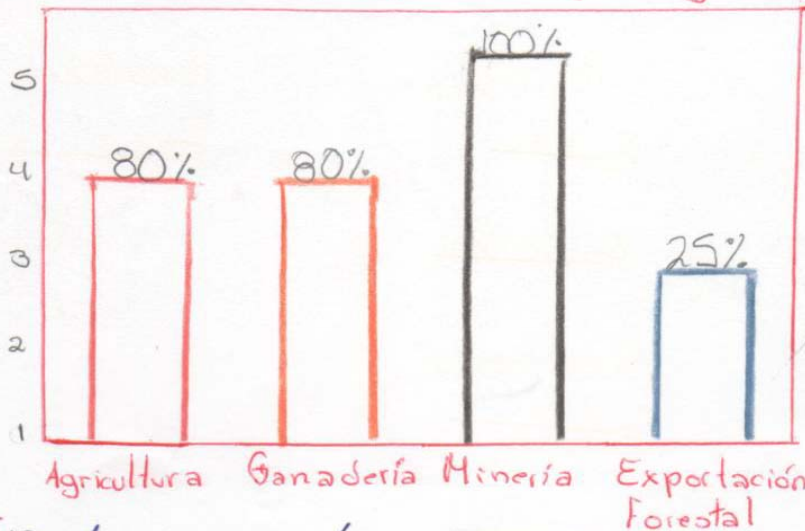 100%
5
80% 80%
4
25%
3
2
1
Agricultura Ganadería Minería Exportación
Forestal